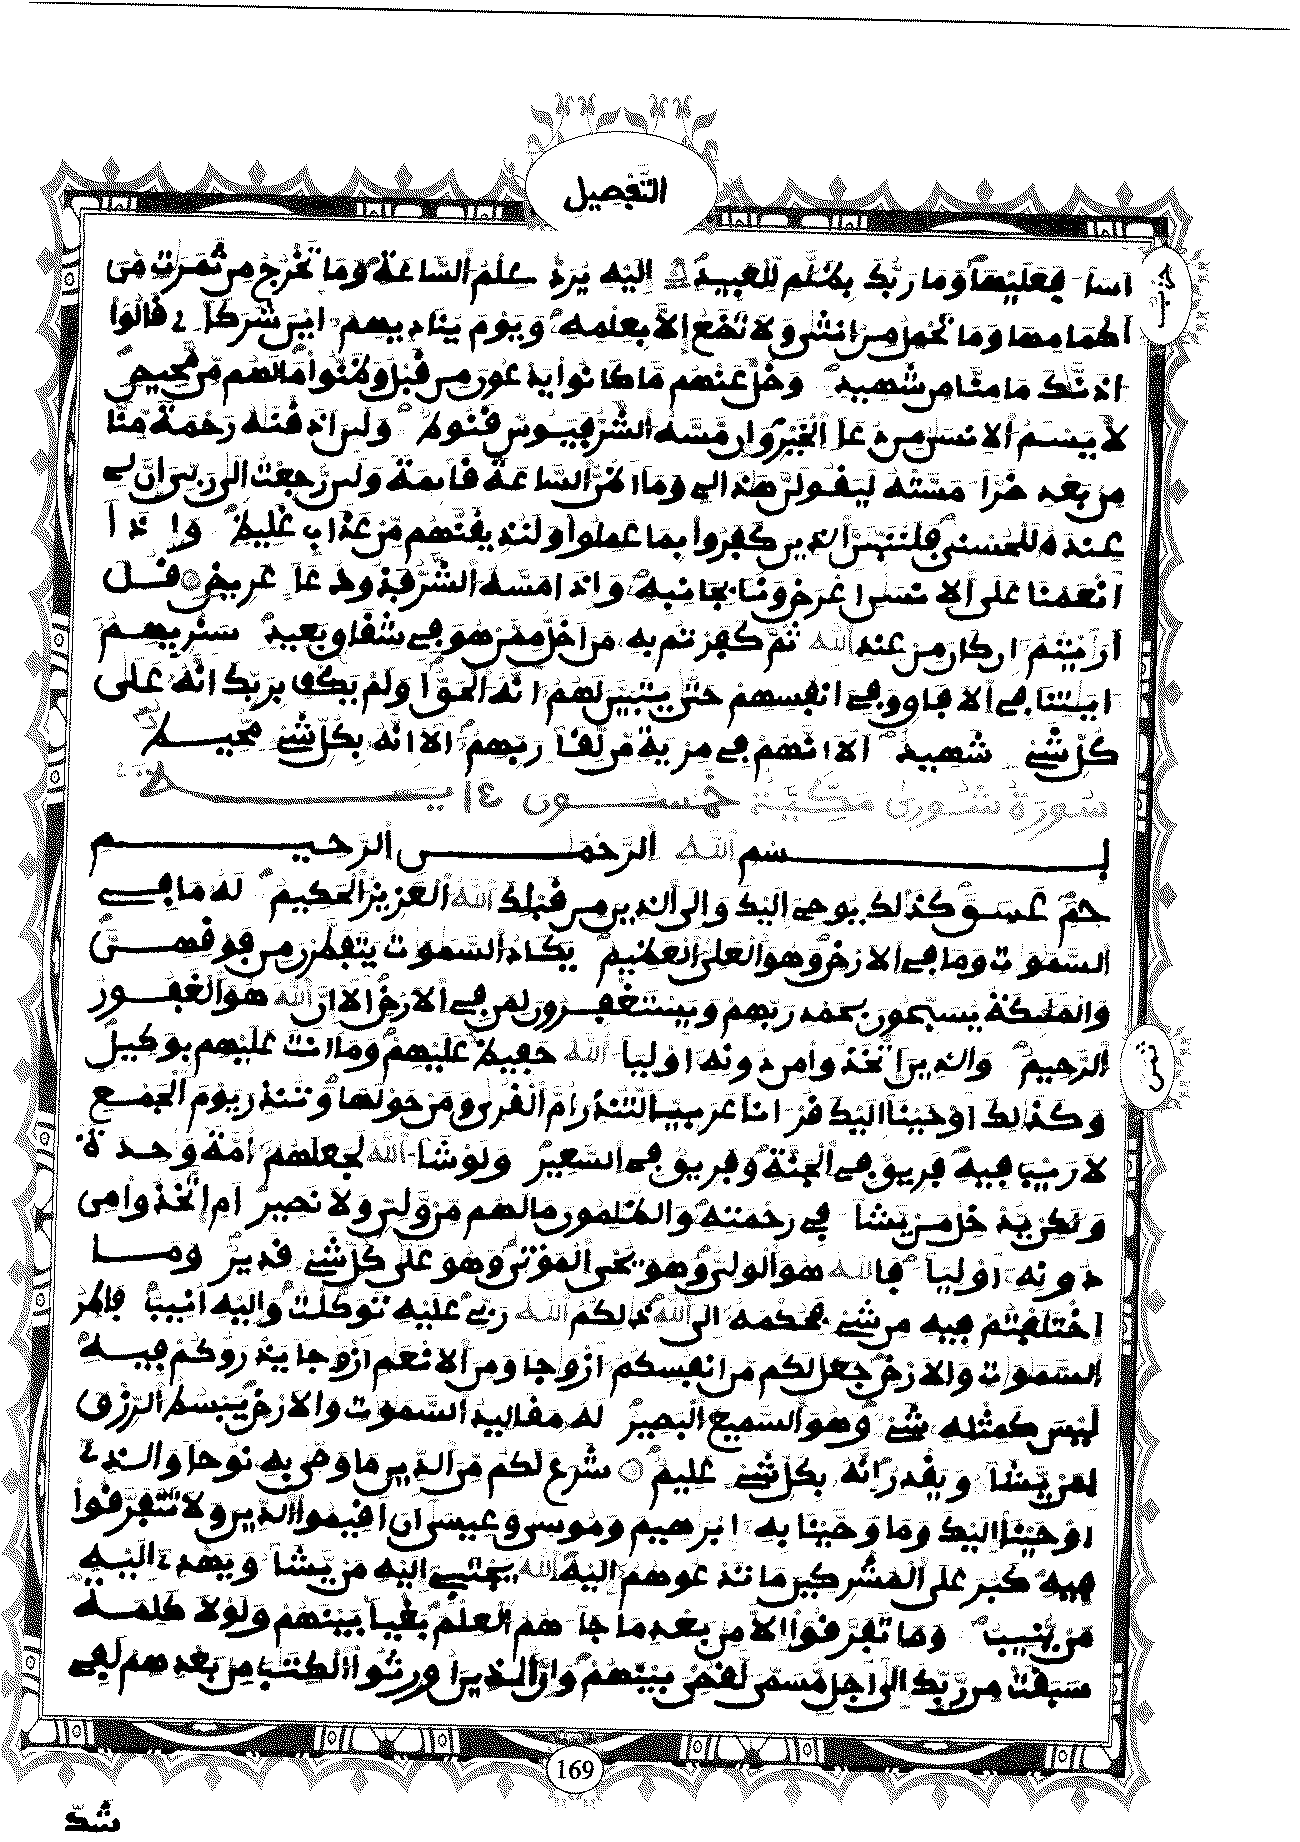 التفصيل
حزب
اسا فعليها وما ربك بظلم للعبيد اليه يرد علم الساعة وما تخرج من ثمرت من
اكمامها وما تحمل من انثى ولا تضع الا بعلمه ويوم يناديهم اين شركاءى قالوا
اذنك مامنا من شهيد وضل عنهم ما كانوا يدعون من قبل وظنوا مالهم من محيص
لا يسئم الانسن من دعا الخير وان مسه الشر فيوس قنوط ولين اذقنه رحمة منا
من بعد ضرا مسته ليقولن هذا لى وما اظن الساعة قايمة ولين رجعت الى ربى ان لى
عنده للحسنى فلننبين الذين كفروا بما عملوا ولنذيقنهم من عذاب غليظ واذا
انعمنا على الانسن اعرض ونا بجانبه واذا مسه الشر فذو دعا عريض قل
ارايتم ان كان من عند الله ثم كفرتم به من اضل ممن هو فى شقاق بعيد سنريهم
ايتنا فى الافاق وفى انفسهم حتى يتبين لهم انه الحق اولم يكف بربك انه على
كل شى شهيد الا انهم فى مرية من لقا ربهم الا انه بكل شى محيط
سورة شورى مكية خمسون اية
بسم الله الرحمن الرحيم
حم عسق كذلك يوحى اليك والى الذين من قبلك الله العزيز الحكيم له ما فى
السموت وما فى الارض وهو العلى العظيم يكاد السموت يتفطرن من فوقهن
والمليكة يسبحون بحمد ربهم ويستغفرون لمن فى الارض الا ان الله هو الغفور
الرحيم والذين اتخذوا من دونه اوليا الله حفيظ عليهم وما انت عليهم بوكيل
وكذلك اوحينا اليك قرانا عربيا لتنذر ام القرى ومن حولها وتنذر يوم الجمع
لا ريب فيه فريق فى الجنة وفريق فى السعير ولو شا الله لجعلهم امة وحدة
ولكن يدخل من يشا فى رحمته والظلمون مالهم من ولى ولا نصير ام اتخذوا من
دونه اوليا فالله هو الولى وهو يحى الموتى وهو على كل شى قدير وما
اختلفتم فيه من شى فحكمه الى الله ذلكم الله ربى عليه توكلت واليه انيب فاطر
السموت والارض جعل لكم من انفسكم ازوجا ومن الانعم ازوجا يذروكم فيه
ليس كمثله شى وهو السميع البصير له مقاليد السموت والارض يبسط الرزق
لمن يشا ويقدر انه بكل شى عليم شرع لكم من الدين ما وصى به نوحا والذى
اوحينا اليك وما وصينا به ابرهيم وموسى وعيسى ان اقيموا الدين ولا تتفرقوا
فيه كبر على المشركين ما تدعوهم اليه الله يجتبى اليه من يشا ويهدى اليه
من ينيب وما تفرقوا الا من بعد ما جاهم العلم بغيا بينهم ولولا كلمة
سبقت من ربك الى اجل مسمى لقضى بينهم وان الذين اورثوا الكتب من بعدهم لفى
ثمن
169
شك